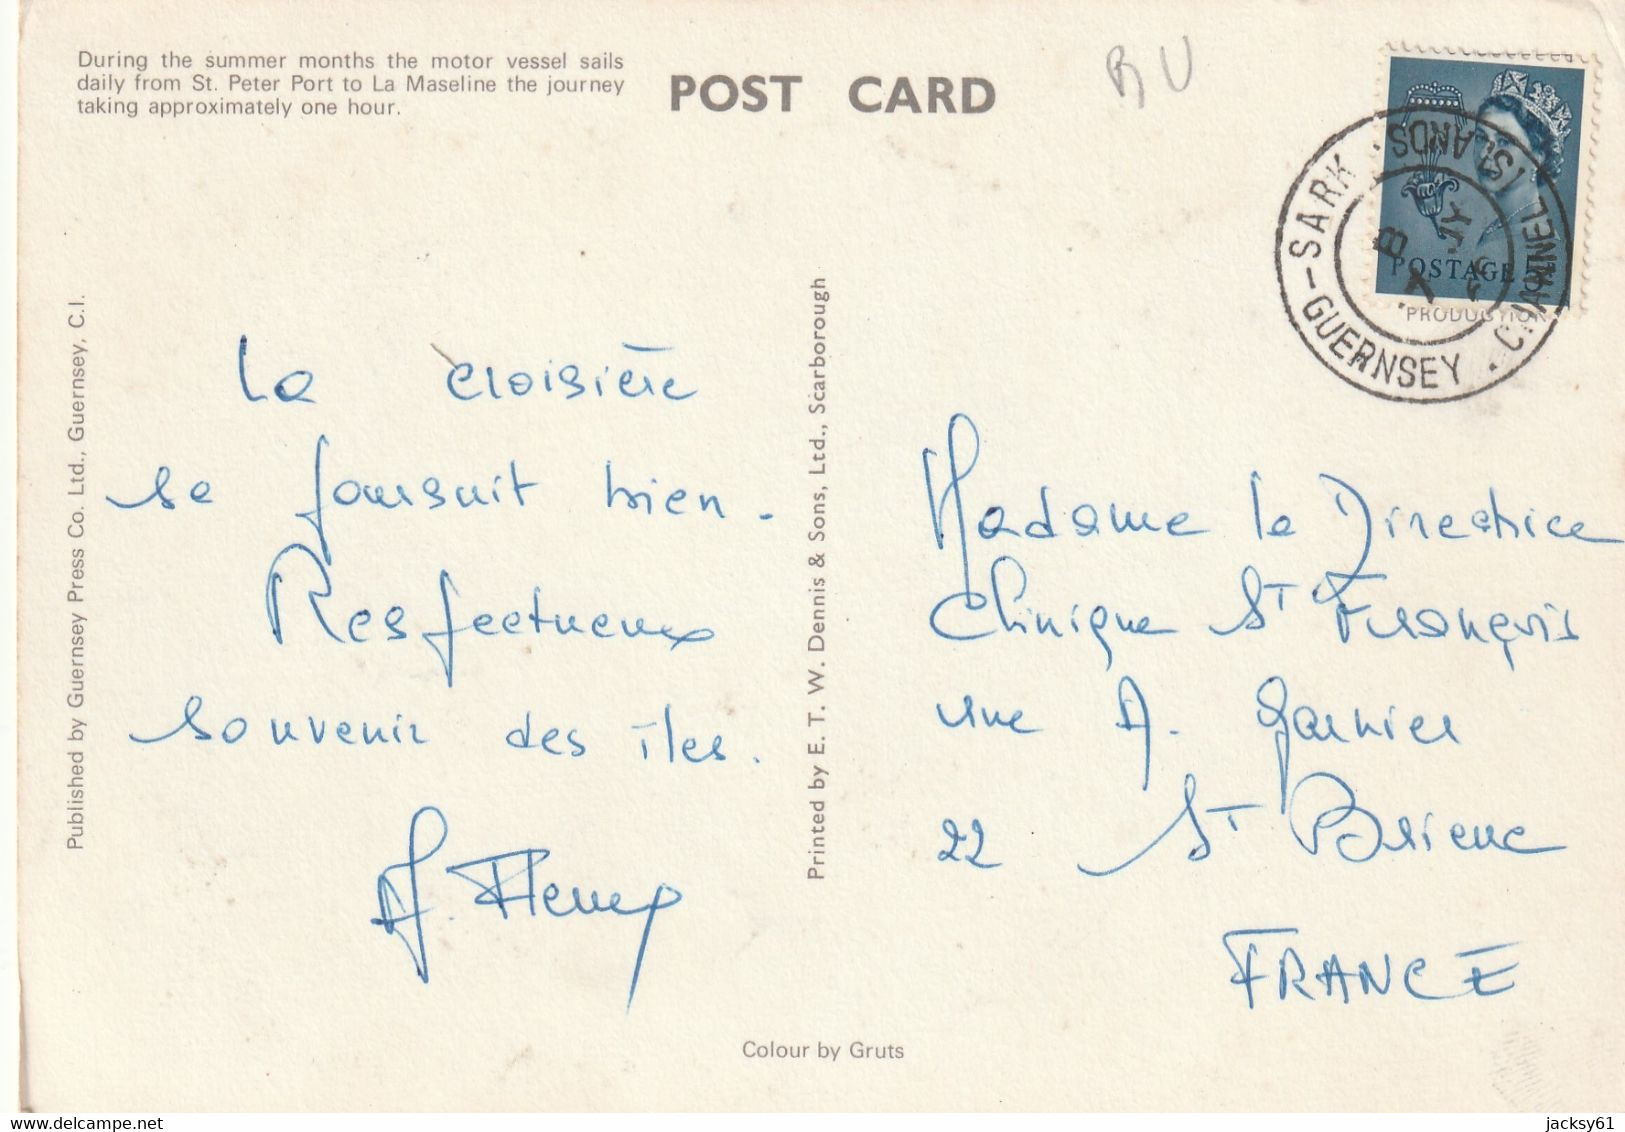 During the summer months the motor vessel sails
daily from St. Peter Port to La Maseline the journey
taking approximately one hour.
POST CARD
SARK - GUERNSEY . CHANNEL ISLANDS .
POSTAGE
PRODUCTION
Published by Guernsey Press Co. Ltd., Guernsey, C.I.
La croisière
se poursuit bien.
Respectueux
souvenir des îles.
Printed by E. T. W. Dennis & Sons, Ltd., Scarborough
Madame la Directrice
Clinique St François
rue A. Garnier
22 St Brieuc
FRANCE
Colour by Gruts
jacksy61